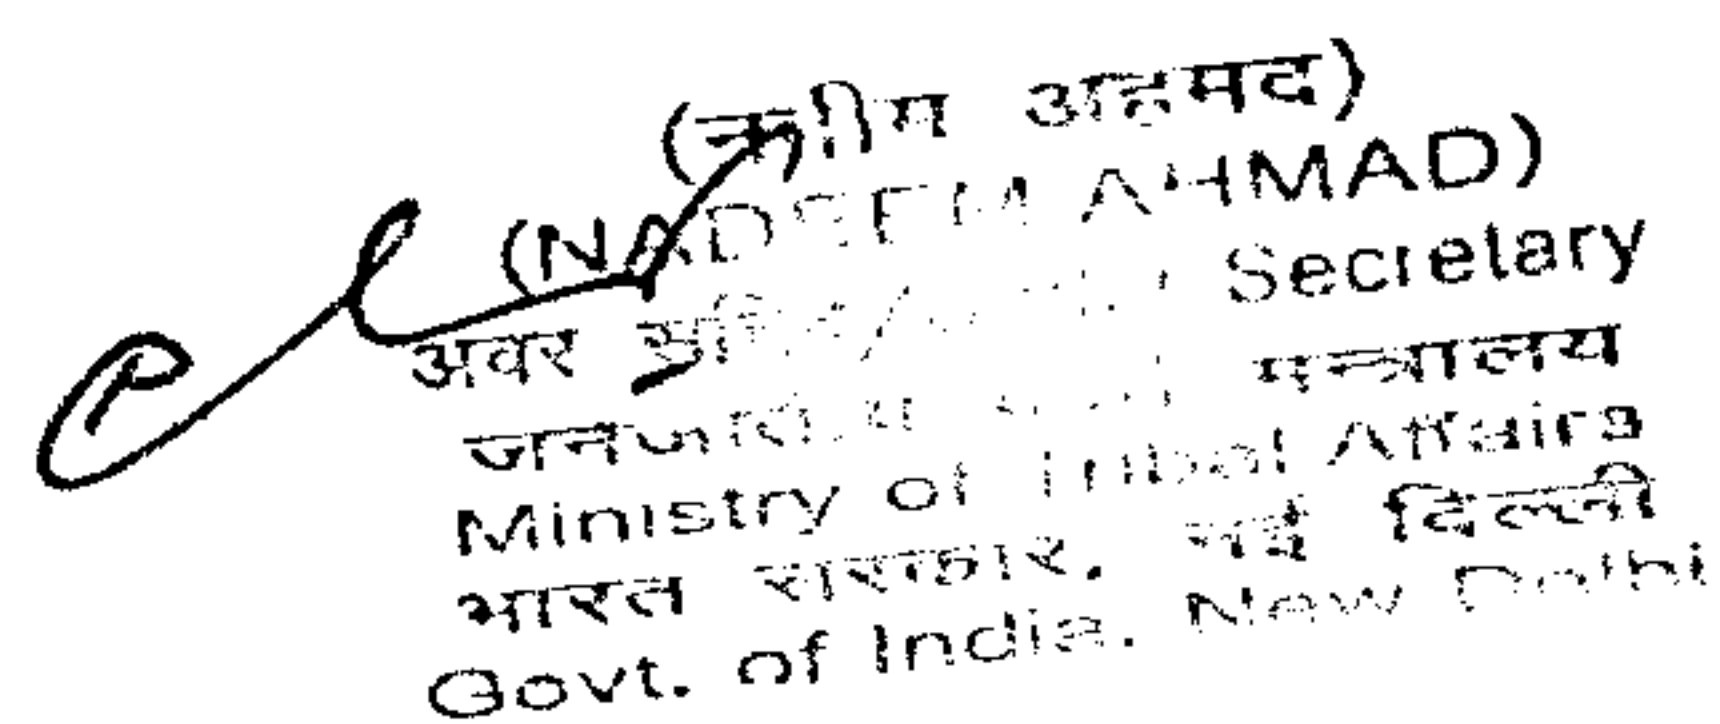 ( अहमद)
(NADEEM AHMAD)
अवर Secretary
मन्त्रालय
Ministry of Tribal Affairs
भारत सरकार, नई दिल्ली
Govt. of India. New Delhi